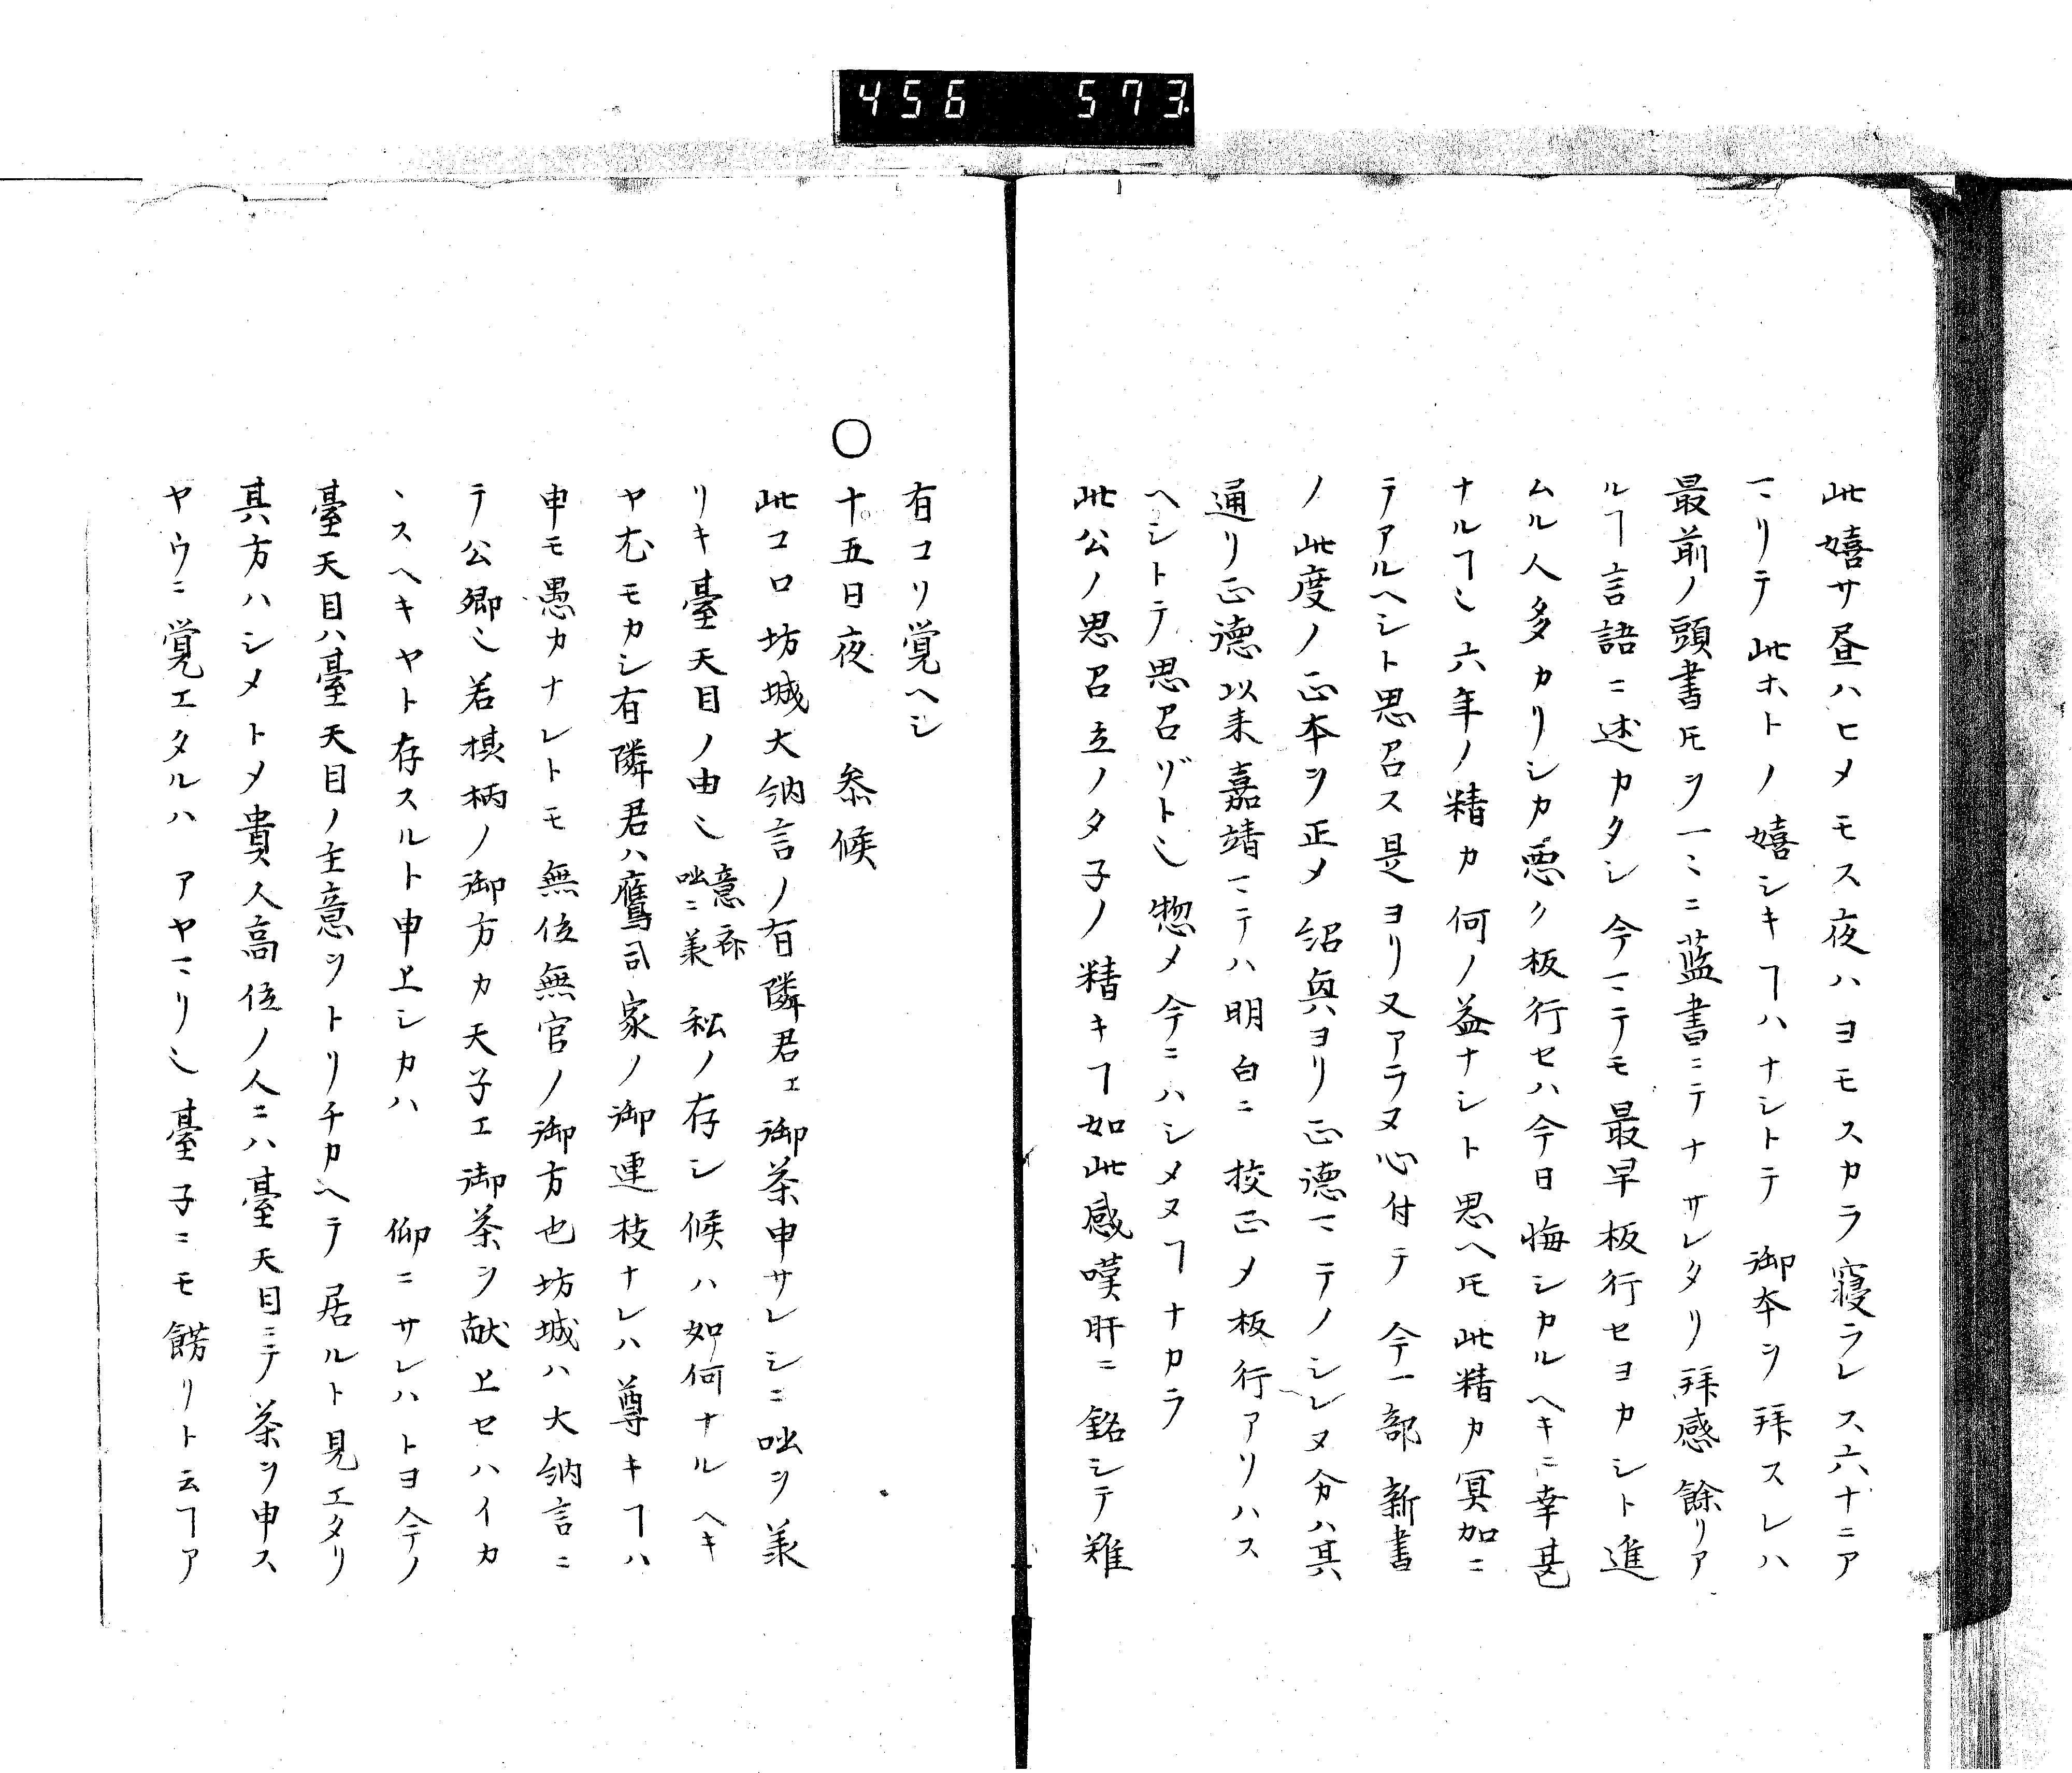 456 573
此嬉サ昼ハヒメモス夜ハヨモスカラ寝ラレス六十ニア
マリテ此ホトノ嬉シキヿハナシトテ 御本ヲ拜スレハ
最前ノ頭書𪜈ヲ一〻ニ藍書ニテナサレタリ拜感餘リア
ルヿ言語ニ述カタシ今マテモ最早板行セヨカシト進
ムル人多カリシカ悪ク板行セハ今日悔シカルヘキニ幸甚
ナルヿ也六年ノ精カ何ノ益ナシト思ヘ𪜈此精カ冥加ニ
テアルヘシト思召ス是ヨリ又アラヌ心付テ今一部新書
ノ此度ノ正本ヲ正メ紹與ヨリ正德マテノシレヌ分ハ其
通リ正德以来嘉靖マテハ明白ニ校正メ板行アリハス
ヘシトテ思召ヅト也惣メ今ニハシメヌヿナカラ
此公ノ思召立ノタ子ノ精キヿ如此感嘆肝ニ銘シテ難
有コリ覚ヘシ
〇十五日夜 参候
此コロ坊城大納言ノ有隣君エ御茶申サレシニ咄ヲ羕
リキ臺天目ノ由也 咄ニ羕 私ノ存シ候ハ如何ナルヘキ
ヤ尤モカシ有隣君ハ鷹司家ノ御連枝ナレハ尊キヿハ
申モ愚カナレトモ無位無官ノ御方也坊城ハ大納言ニ
テ公卿也若棋柄ノ御方カ天子エ御茶ヲ献上セハイカ
ヽスヘキヤト存スルト申上シカハ 仰ニサレハトヨ今ノ
臺天目ハ臺天目ノ主意ヲトリチカヘテ居ルト見エタリ
其方ハシメトメ貴人高位ノ人ニハ臺天目ニテ茶ヲ申ス
ヤウニ覚エタルハ アヤマリ也臺子ニモ餝リト云ヿア